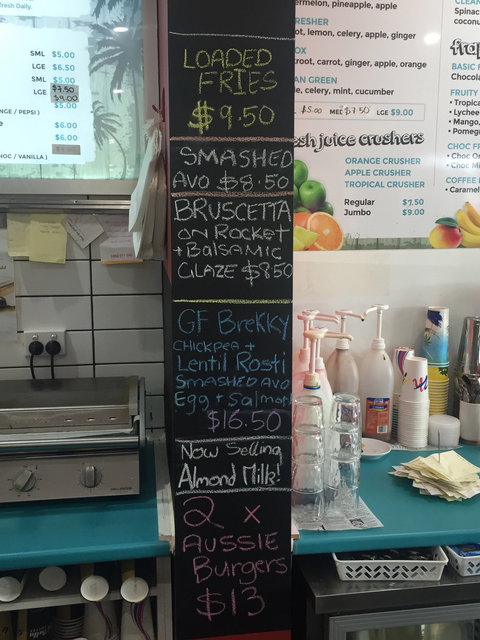 fresh Daily.
SML $5.00
LGE $6.50
SML $5.00
LGE $7.50
$9.00
$5.00
NGE / PEPSI )
$6.00
$6.00
HOC / VANILLA )
LOADED
FRIES
$9.50
SMASHED
AVO $8.50
BRUSCETTA
ON ROCKET
+ BALSAMIC
GLAZE $8.50
GF BREKKY
CHICKPEA +
Lentil Rosti
SMASHED AVO
Egg + Salmon
$16.50
Now Selling
Almond Milk!
2 x
AUSSIE
Burgers
$13
ermelon, pineapple, apple
RESHER
ot, lemon, celery, apple, ginger
OX
troot, carrot, ginger, apple, orange
AN GREEN
le, celery, mint, cucumber
$5.00 MED $7.50 LGE $9.00
esh juice crushers
ORANGE CRUSHER
APPLE CRUSHER
TROPICAL CRUSHER
Regular $7.50
Jumbo $9.00
CLEAN
Spinac
coconu
frap
BASIC F
Chocola
FRUITY
• Tropica
• Lychee
• Mango,
• Pomegr
CHOC FR
• Choc O
• Choc Mi
COFFEE
• Caramel